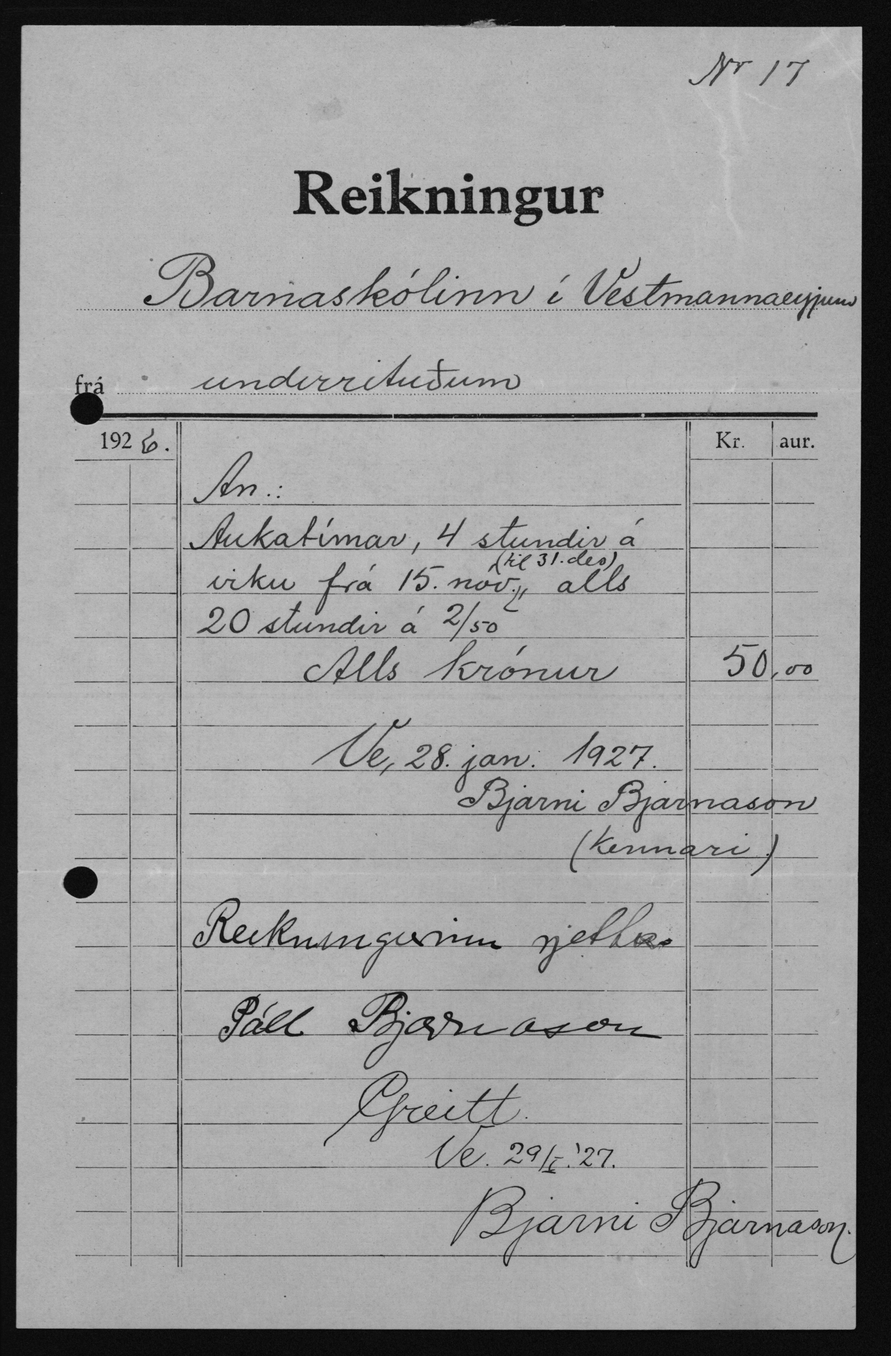 Nr 17
Reikningur
Barnaskólinn í Vestmannaeyjum
frá undirrituðum
1926. Kr. aur.
An.:
Aukatímar, 4 stundir á
(til 31. des)
viku frá 15. nov., alls
20 stundir á 2/50
Alls krónur 50,00
Ve, 28. jan. 1927.
Bjarni Bjarnason
(kennari)
Reikningurinn rjettur
Páll Bjarnason
Greitt.
Ve. 29/I.'27.
Bjarni Bjarnason.